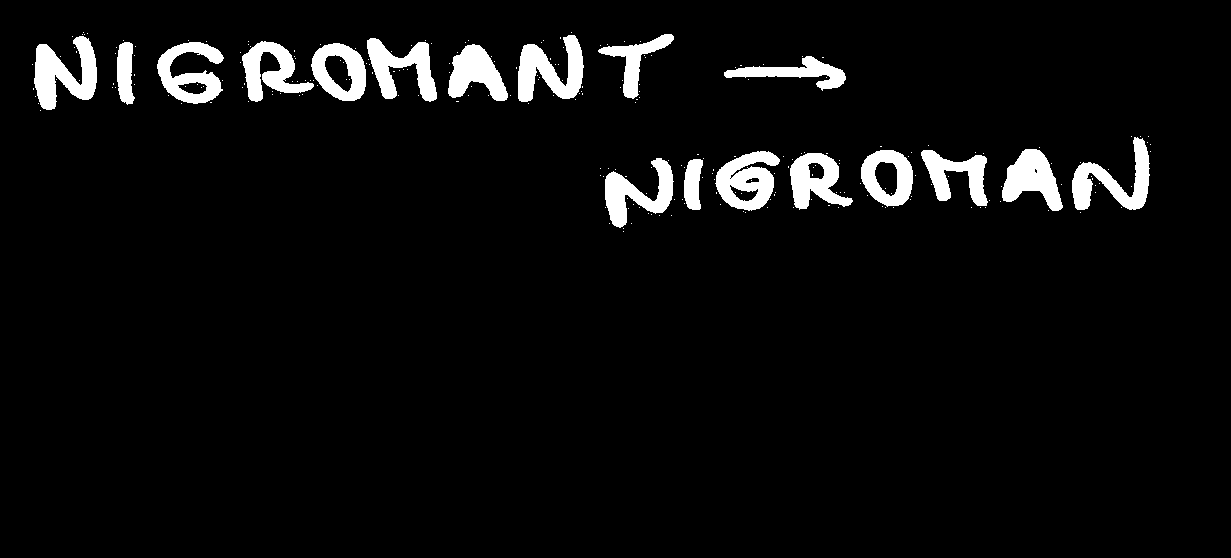 NIGROMANT →
NIGROMAN